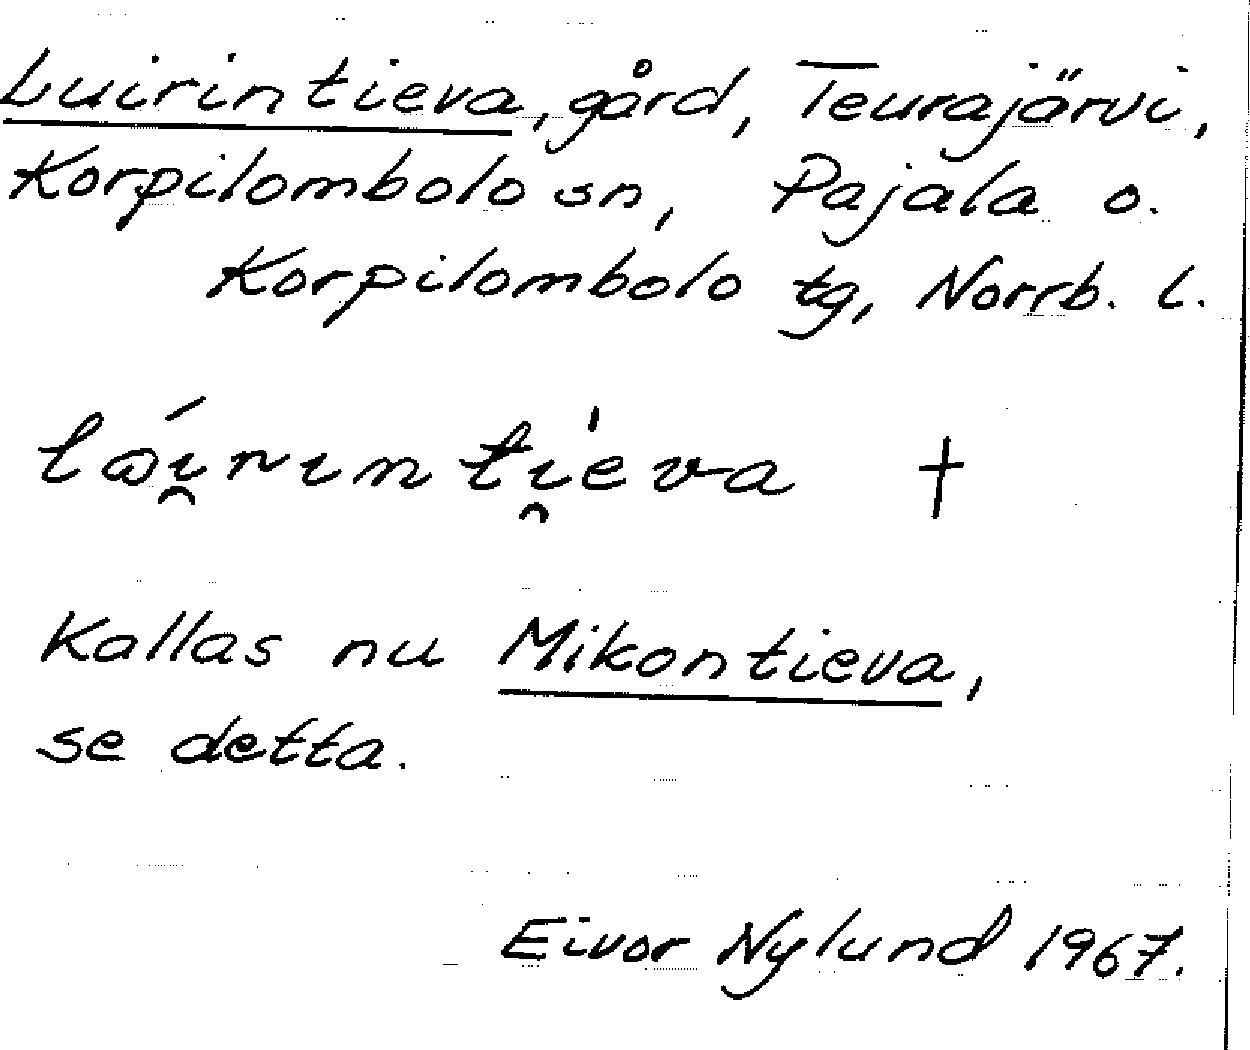 Luirintieva, gård, Teurajärvi,
Korpilombolo sn, Pajala o.
Korpilombolo tg, Norrb. l.
lɷ́i̯rɩn ti̯èva †
Kallas nu Mikontieva,
se detta.
Eivor Nylund 1967.